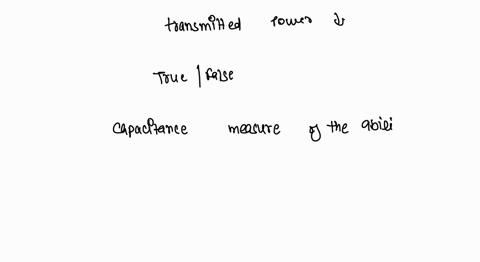 transmitted power is
True | False
Capacitance measure of the abili